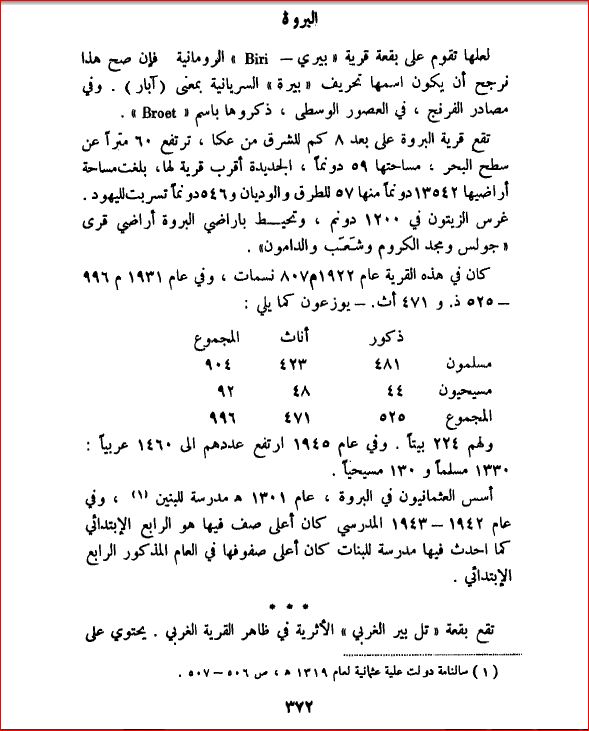 البروة
لعلها تقوم على بقعة قرية « بيري – Biri » الرومانية فإن صح هذا
نرجح أن يكون اسمها تحريف « بيرة » السريانية بمعنى ( آبار ) . وفي
مصادر الفرنج ، في العصور الوسطى ، ذكروها باسم « Broet » .
تقع قرية البروة على بعد ٨ كم للشرق من عكا ، ترتفع ٦٠ متراً عن
سطح البحر ، مساحتها ٥٩ دونماً ، الجديدة أقرب قرية لها، بلغت مساحة
أراضيها ١٣٥٤٢ دونماً منها ٥٧ للطرق والوديان و٥٤٦ دونماً تسربت لليهود .
غرس الزيتون في ١٢٠٠ دونم ، وتحيط باراضي البروة أراضي قرى
« جولس ومجد الكروم وشَعَب والدامون» .
كان في هذه القرية عام ١٩٢٢م ٨٠٧ نسمات ، وفي عام ١٩٣١ م ٩٩٦
– ٥٢٥ ذ. و ٤٧١ أث. – يوزعون كما يلي :
ذكور أناث المجموع
مسلمون ٤٨١ ٤٢٣ ٩٠٤
مسيحيون ٤٤ ٤٨ ٩٢
المجموع ٥٢٥ ٤٧١ ٩٩٦
ولهم ٢٢٤ بيتاً . وفي عام ١٩٤٥ ارتفع عددهم الى ١٤٦٠ عربياً :
١٣٣٠ مسلماً و ١٣٠ مسيحياً .
أسس العثمانيون في البروة ، عام ١٣٠١ ه مدرسة للبنين (١) ، وفي
عام ١٩٤٢ – ١٩٤٣ المدرسي كان أعلى صف فيها هو الرابع الإبتدائي
كما احدث فيها مدرسة للبنات كان أعلى صفوفها في العام المذكور الرابع
الإبتدائي .
* * *
تقع بقعة « تل بير الغربي » الأثرية في ظاهر القرية الغربي . يحتوي على
( ١ ) سالنامة دولت علية عثمانية لعام ١٣١٩ ه ، ص ٥٠٦ – ٥٠٧ .
٣٧٢